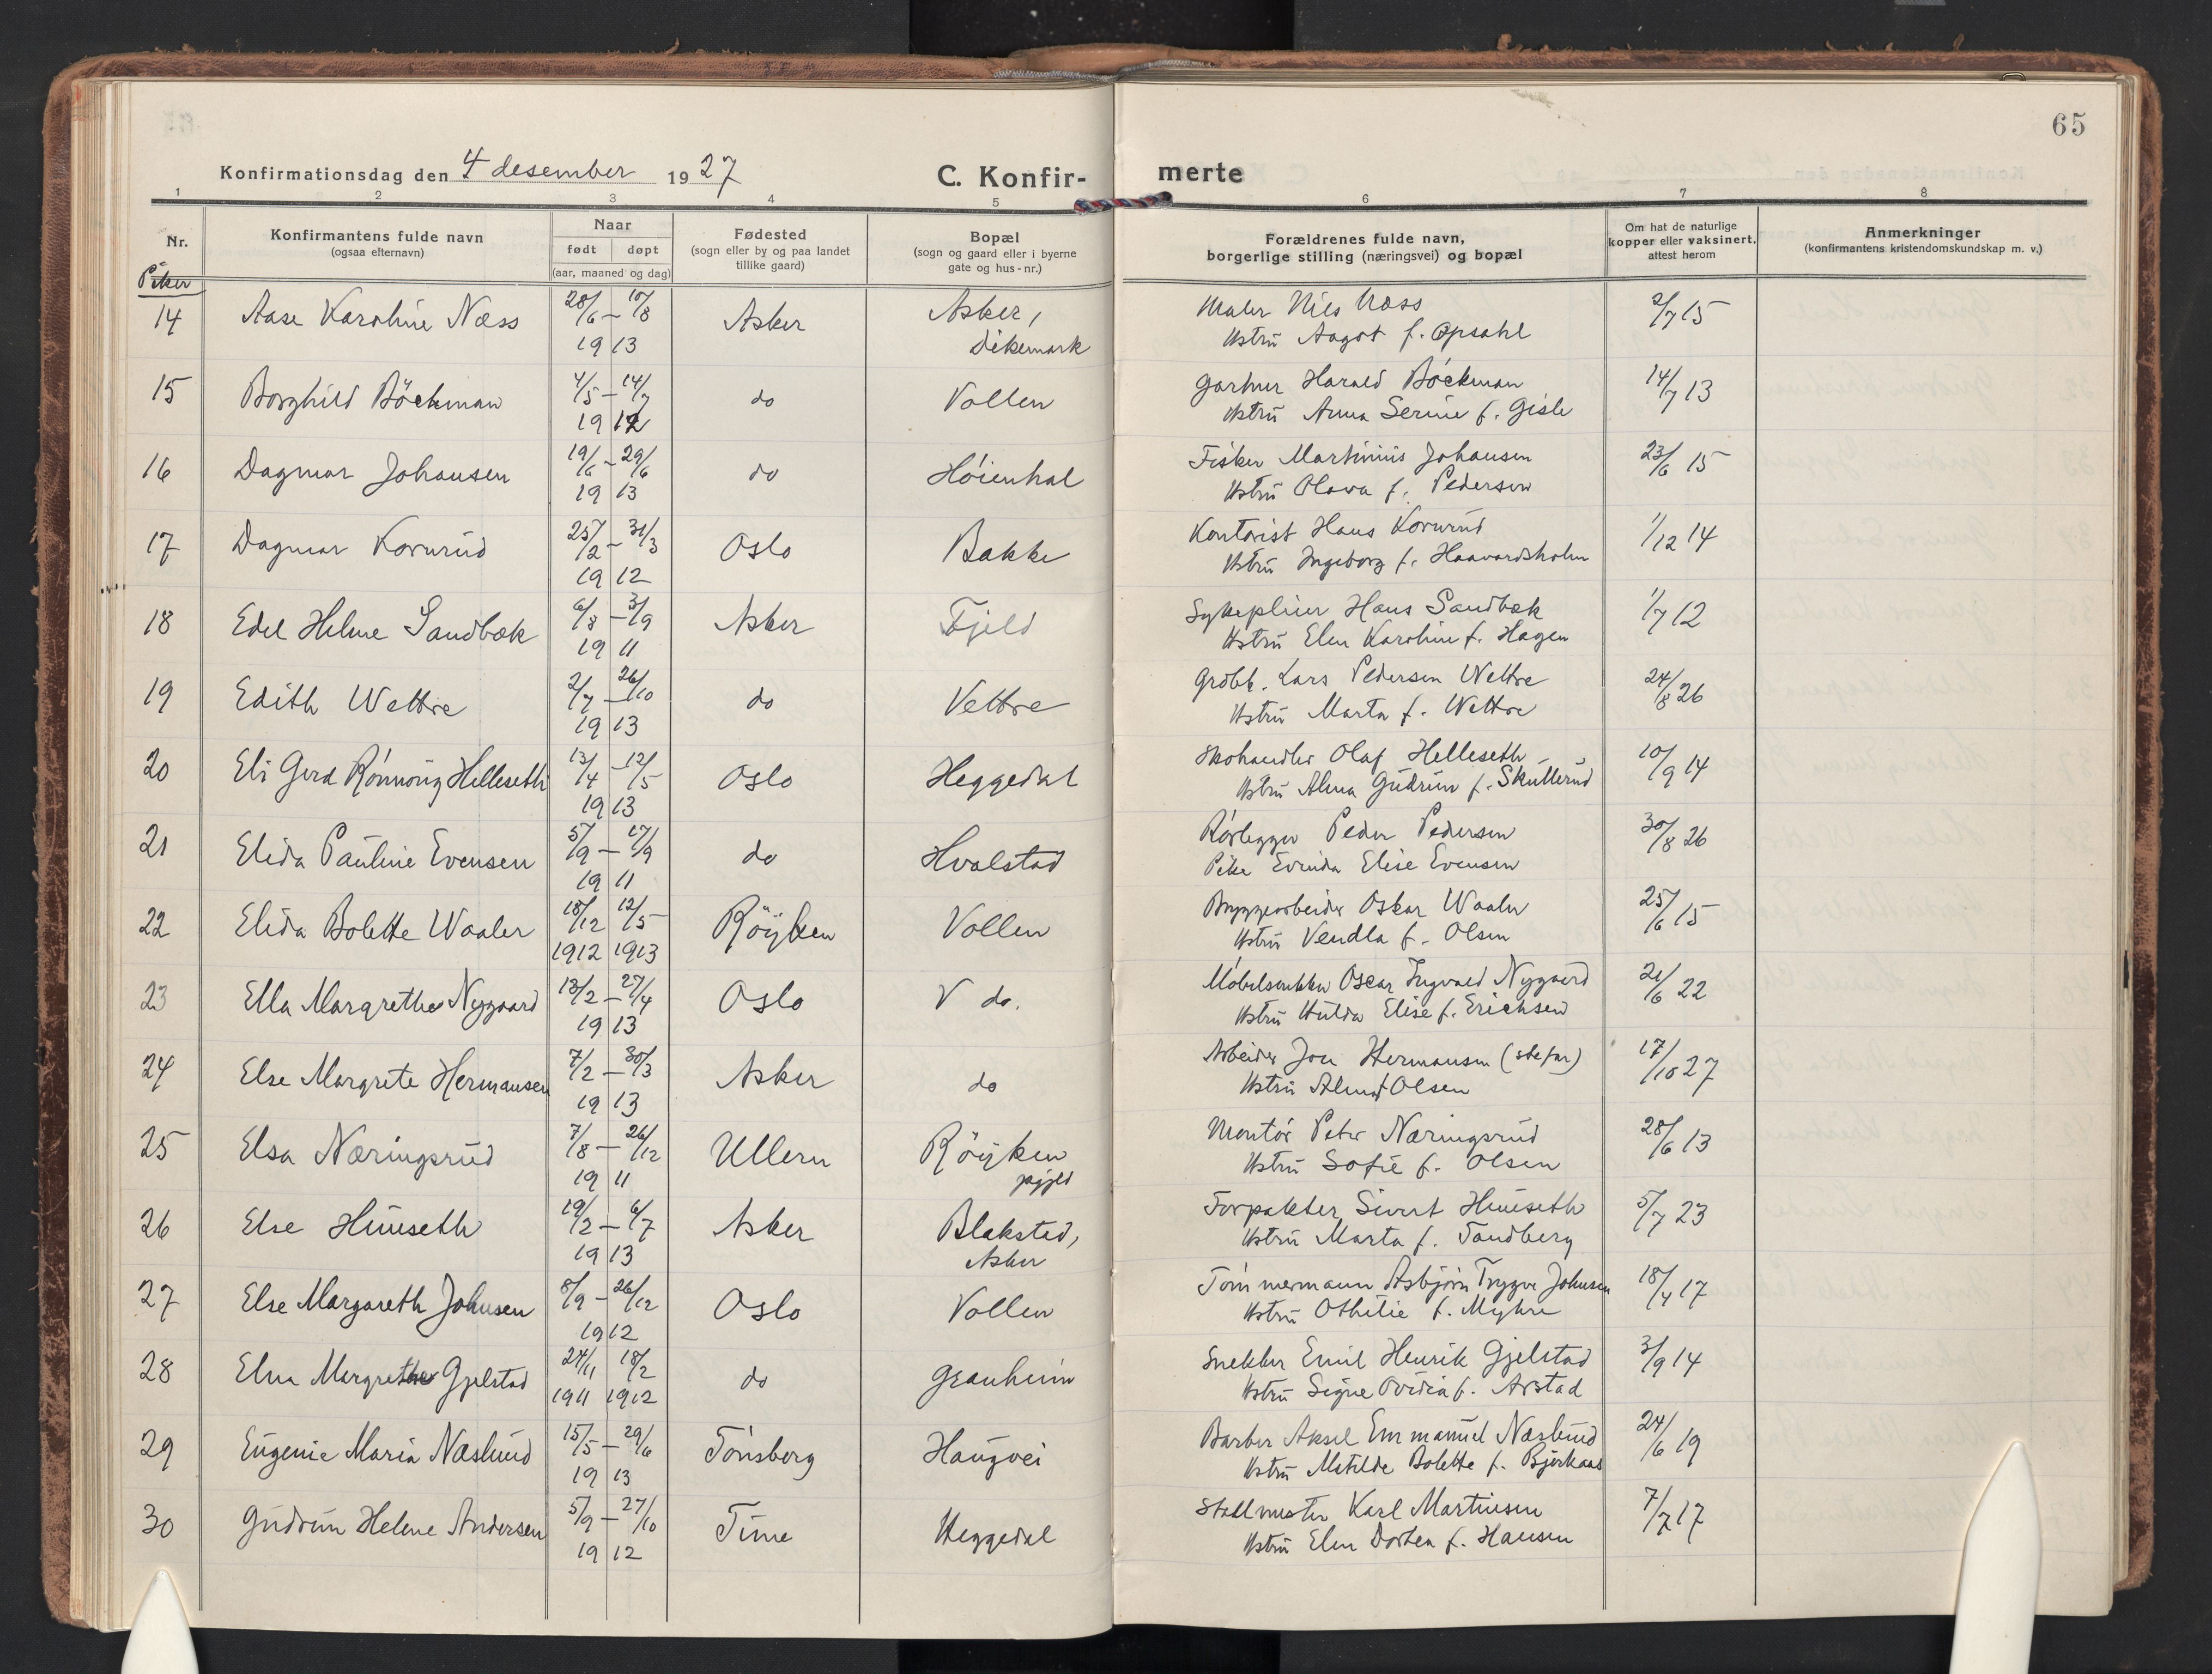 65
Konfirmationsdag den 4 desember 1927
C. Konfirmerte
1 2 3 4 5 6 7 8
Nr.
Konfirmantens fulde navn
(ogsaa efternavn)
Naar
født døpt
(aar, maaned og dag)
Fødested
(sogn eller by og paa landet
tillike gaard)
Bopæl
(sogn og gaard eller i byerne
gate og hus-nr.)
Forældrenes fulde navn,
borgerlige stilling (næringsvei) og bopæl
Om hat de naturlige
kopper eller vaksinert,
attest herom
Anmerkninger
(konfirmantens kristendomskundskap m. v.)
Piker
14 Aase Karoline Næss 28/6 – 10/8 Asker Asker, Maler Nils Næss 2/7 15
1913 Dikemark Hstru Aagot f. Opsahl
15 Borghild Böckman 4/5 – 14/7 do Vollen Gartner Harald Böckman 14/7 13
1912 Hstru Anna Serine f. Gisle
16 Dagmar Johansen 19/6 – 29/6 do Høienhal Fisker Martinius Johansen 23/6 15
1913 Hstru Olava f. Pedersen
17 Dagmar Kornrud 25/2 – 31/3 Oslo Bakke Kontorist Hans Kornrud 1/12 14
1912 Hstru Ingeborg f. Haavardsholm
18 Edel Helene Sandbæk 6/8 – 3/9 Asker Fjeld Sykepleier Hans Sandbæk 1/7 12
1911 Hstru Elen Karoline f. Hagen
19 Edith Wettre 2/7 – 26/10 do Vettre Grdbk. Lars Pedersen Wettre 24/8 26
1913 Hstru Marta f. Wettre
20 Eli Gerd Rønnoug Helleseth 13/4 – 12/5 Oslo Heggedal Skohandler Olaf Helleseth 10/9 14
1913 Hstru Alma Gudrun f. Skullerud
21 Elida Pauline Evensen 5/9 – 17/9 do Hvalstad Rørlegger Peder Pedersen 30/8 26
1911 Pike Evinda Elise Evensen
22 Elida Bolette Waaler 18/12 12/5 Röyken Vollen Bryggearbeider Oskar Waaler 25/6 15
1912 1913 Hstru Vendla f. Olsen
23 Ella Margrethe Nygaard 13/2 – 27/4 Oslo V do. Møbelsnekker Oscar Ingvald Nygaard 21/6 22
1913 Hstru Hulda Elise f. Erichsen
24 Else Margrete Hermansen 7/2 – 30/3 Asker do Arbeider Jon Hermansen (stefar) 17/10 27
1913 Hstru Alma f Olsen
25 Elsa Næringsrud 7/8 – 26/12 Ullern Röyken Montør Peter Næringsrud 28/6 13
1911 pgjeld Hstru Sofie f. Olsen
26 Else Huuseth 19/2 – 6/7 Asker Blakstad, Forpakter Sivert Huuseth 5/7 23
1913 Asker Hstru Marta f. Sandberg
27 Else Margareth Johnsen 8/9 – 26/12 Oslo Vollen Tømmermann Asbjørn Trygve Johnsen 18/4 17
1912 Hstru Othilie f. Myhre
28 Elna Margrethe Gjelstad 24/11 18/2 do Granheim Snekker Emil Henrik Gjelstad 3/9 14
1911 1912 Hstru Signe Ovidia f. Arstad
29 Eugenie Maria Næslund 15/5 – 29/6 Tønsberg Haugvei Barber Aksel Emmanuel Næslund 24/6 19
1913 Hstru Matilde Bolette f. Bjerkaas
30 Gudrun Helene Andersen 5/9 – 27/10 Time Heggedal Stallmester Karl Martinsen 7/7 17
1912 Hstru Elen Dortea f. Hansen